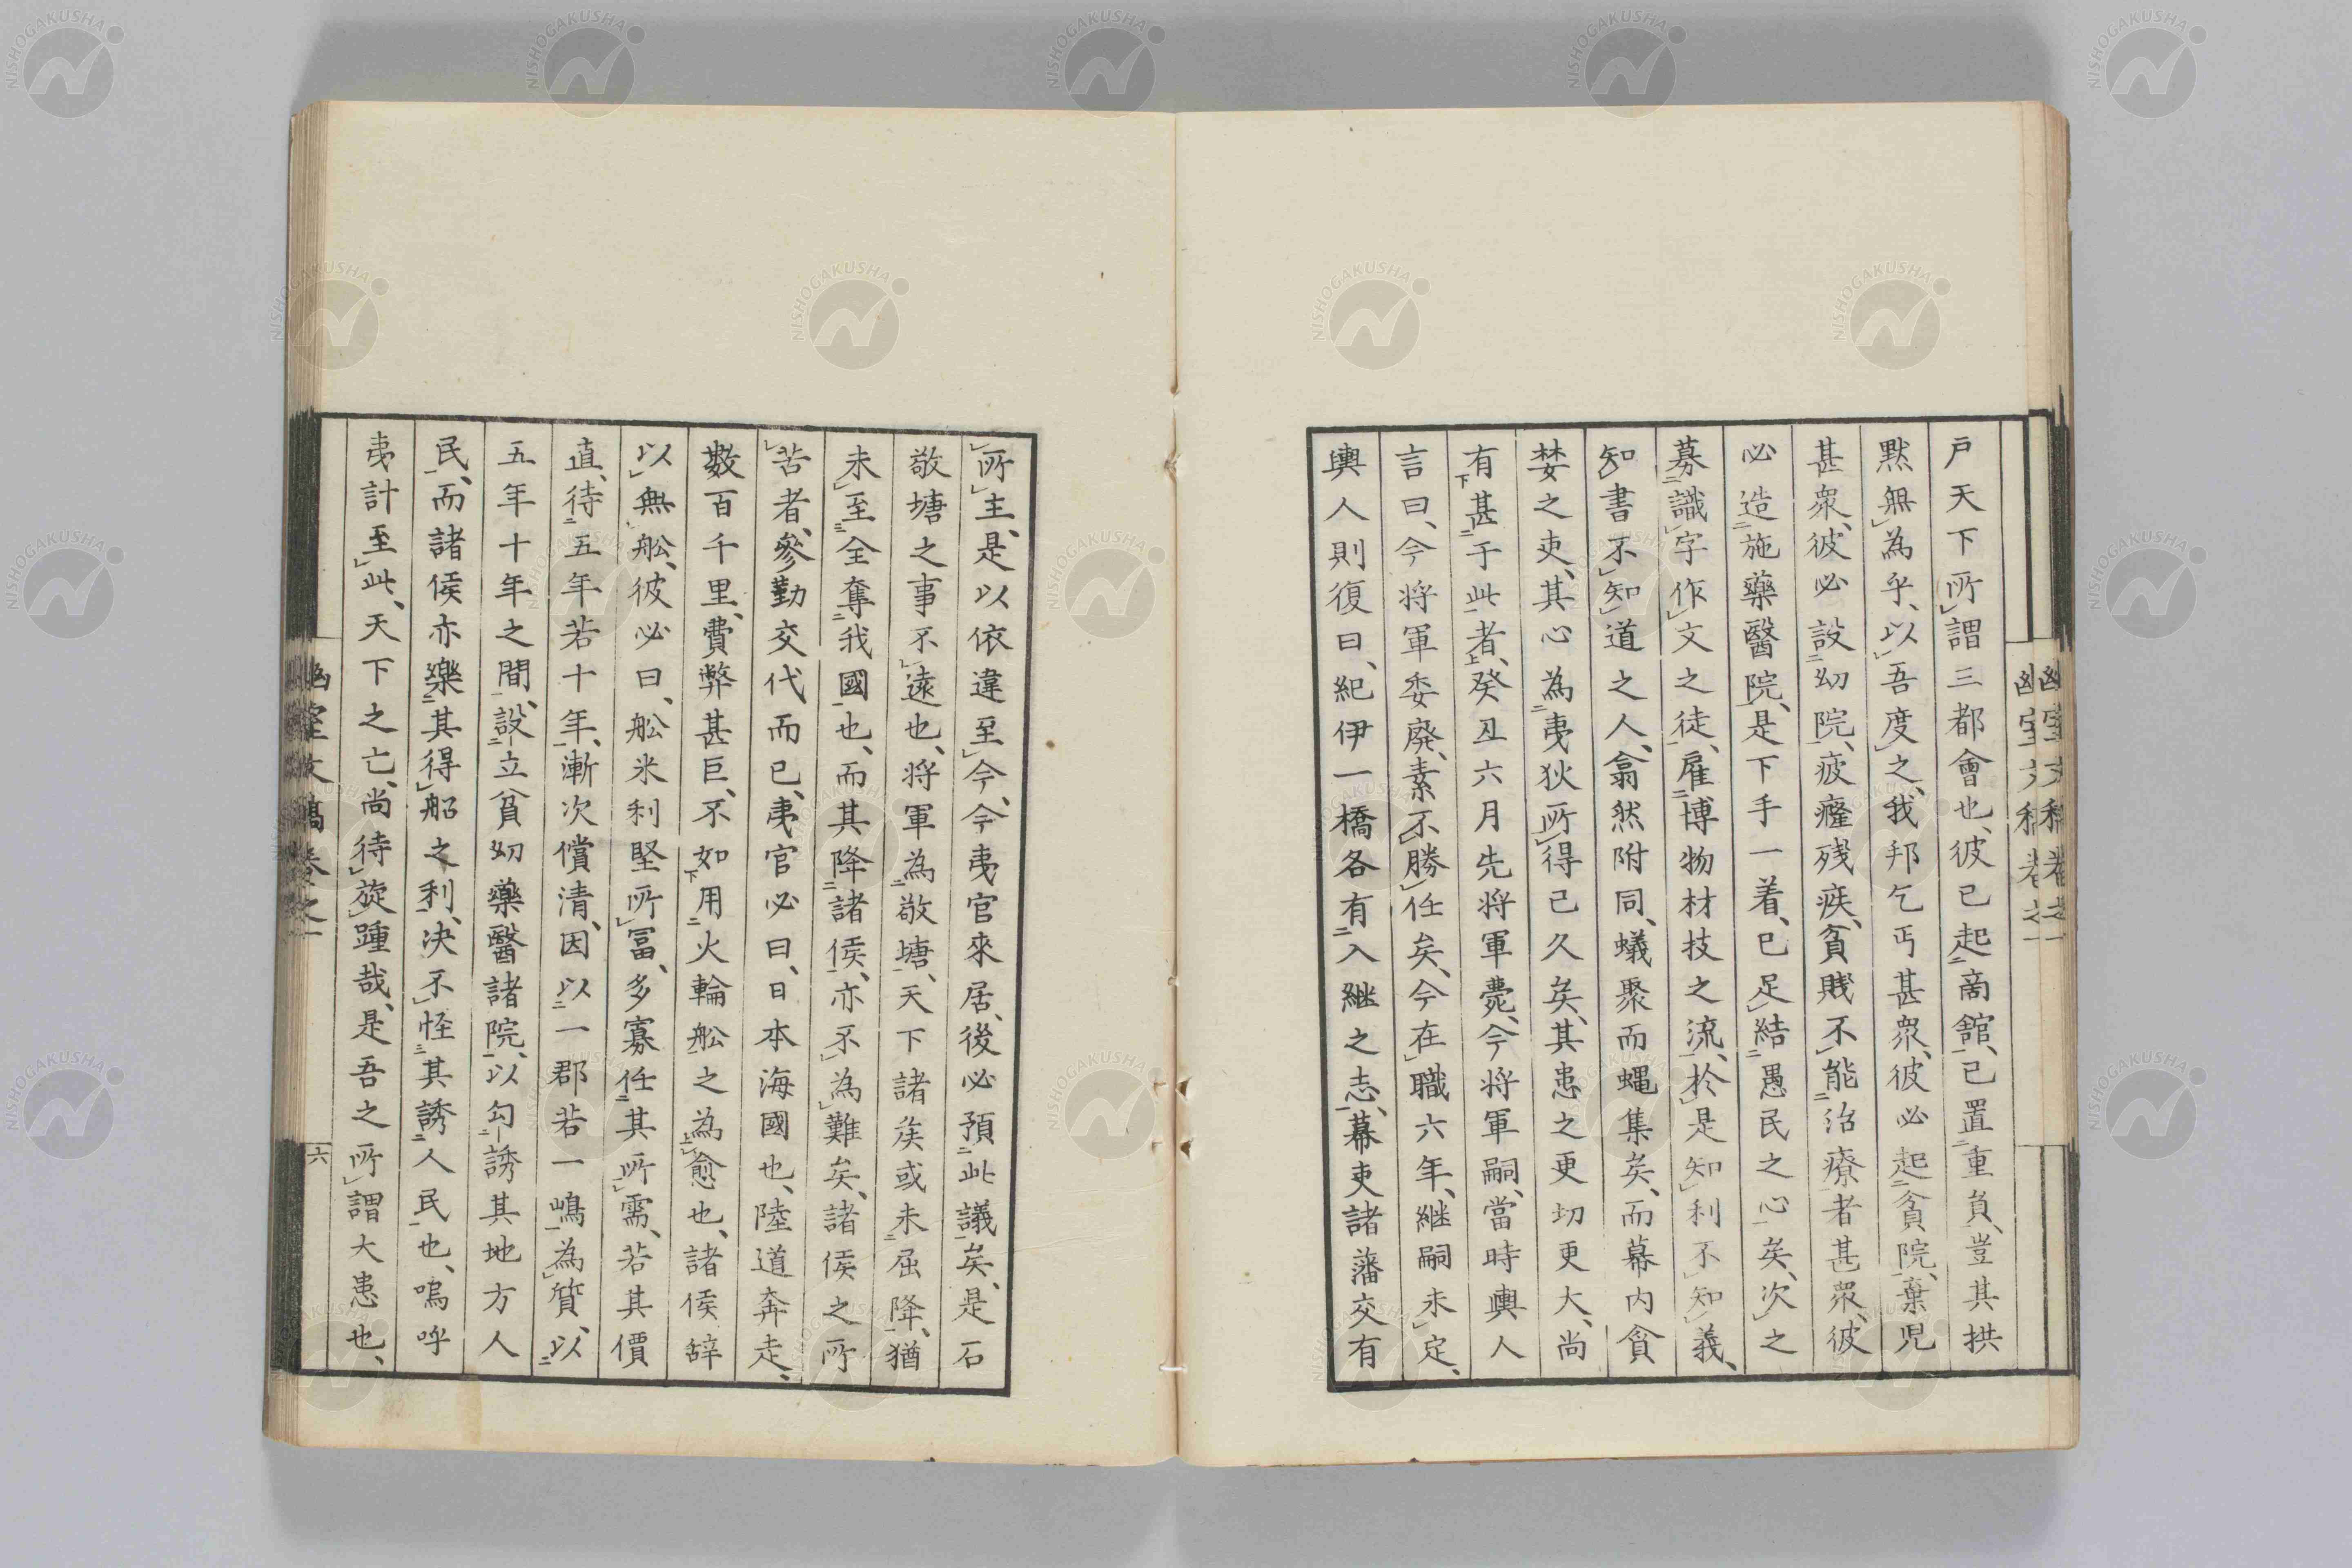 戸天下所謂三都會也、彼已起商舘、已置重負、豈其拱
默無為乎、以吾度之、我邦乞丐甚衆、彼必起貧院、棄児
甚衆、彼必設幼院、疲癃残疾、貧賤不能治療者甚衆、彼
必造施藥醫院、是下手一着、已足結愚民之心矣、次之
募識字作文之徒、雇博物材技之流、於是知利不知義、
知書不知道之人、翕然附同、蟻聚而蝿集矣、而幕内貪
婪之吏、其心為夷狄所得已久矣、其患之更切更大、尚
有甚于此者、癸丑六月先将軍薨、今将軍嗣、當時輿人
言曰、今将軍委廢、素不勝任矣、今在職六年、継嗣未定、
輿人則復曰、紀伊一橋各有入継之志、幕吏諸藩交有
所主、是以依違至今、今夷官來居、後必預此議矣、是石
敬塘之事不遠也、将軍為敬塘、天下諸矦或未屈降、猶
未至全奪我國也、而其降諸侯、亦不為難矣、諸侯之所
苦者、參勤交代而已、夷官必曰、日本海國也、陸道奔走、
数百千里、費弊甚巨、不如用火輪舩之為愈也、諸侯辞
以無舩、彼必曰、舩米利堅所冨、多寡任其所需、若其價
直、待五年若十年、漸次償清、因以一郡若一嶋為質、以
五年十年之間、設立貧幼藥醫諸院、以勾誘其地方人
民、而諸侯亦樂其得船之利、决不怪其誘人民也、嗚呼
夷計至此、天下之亡、尚待旋踵哉、是吾之所謂大患也、
幽室文稿巻之一
六
NISHOGAKUSHA